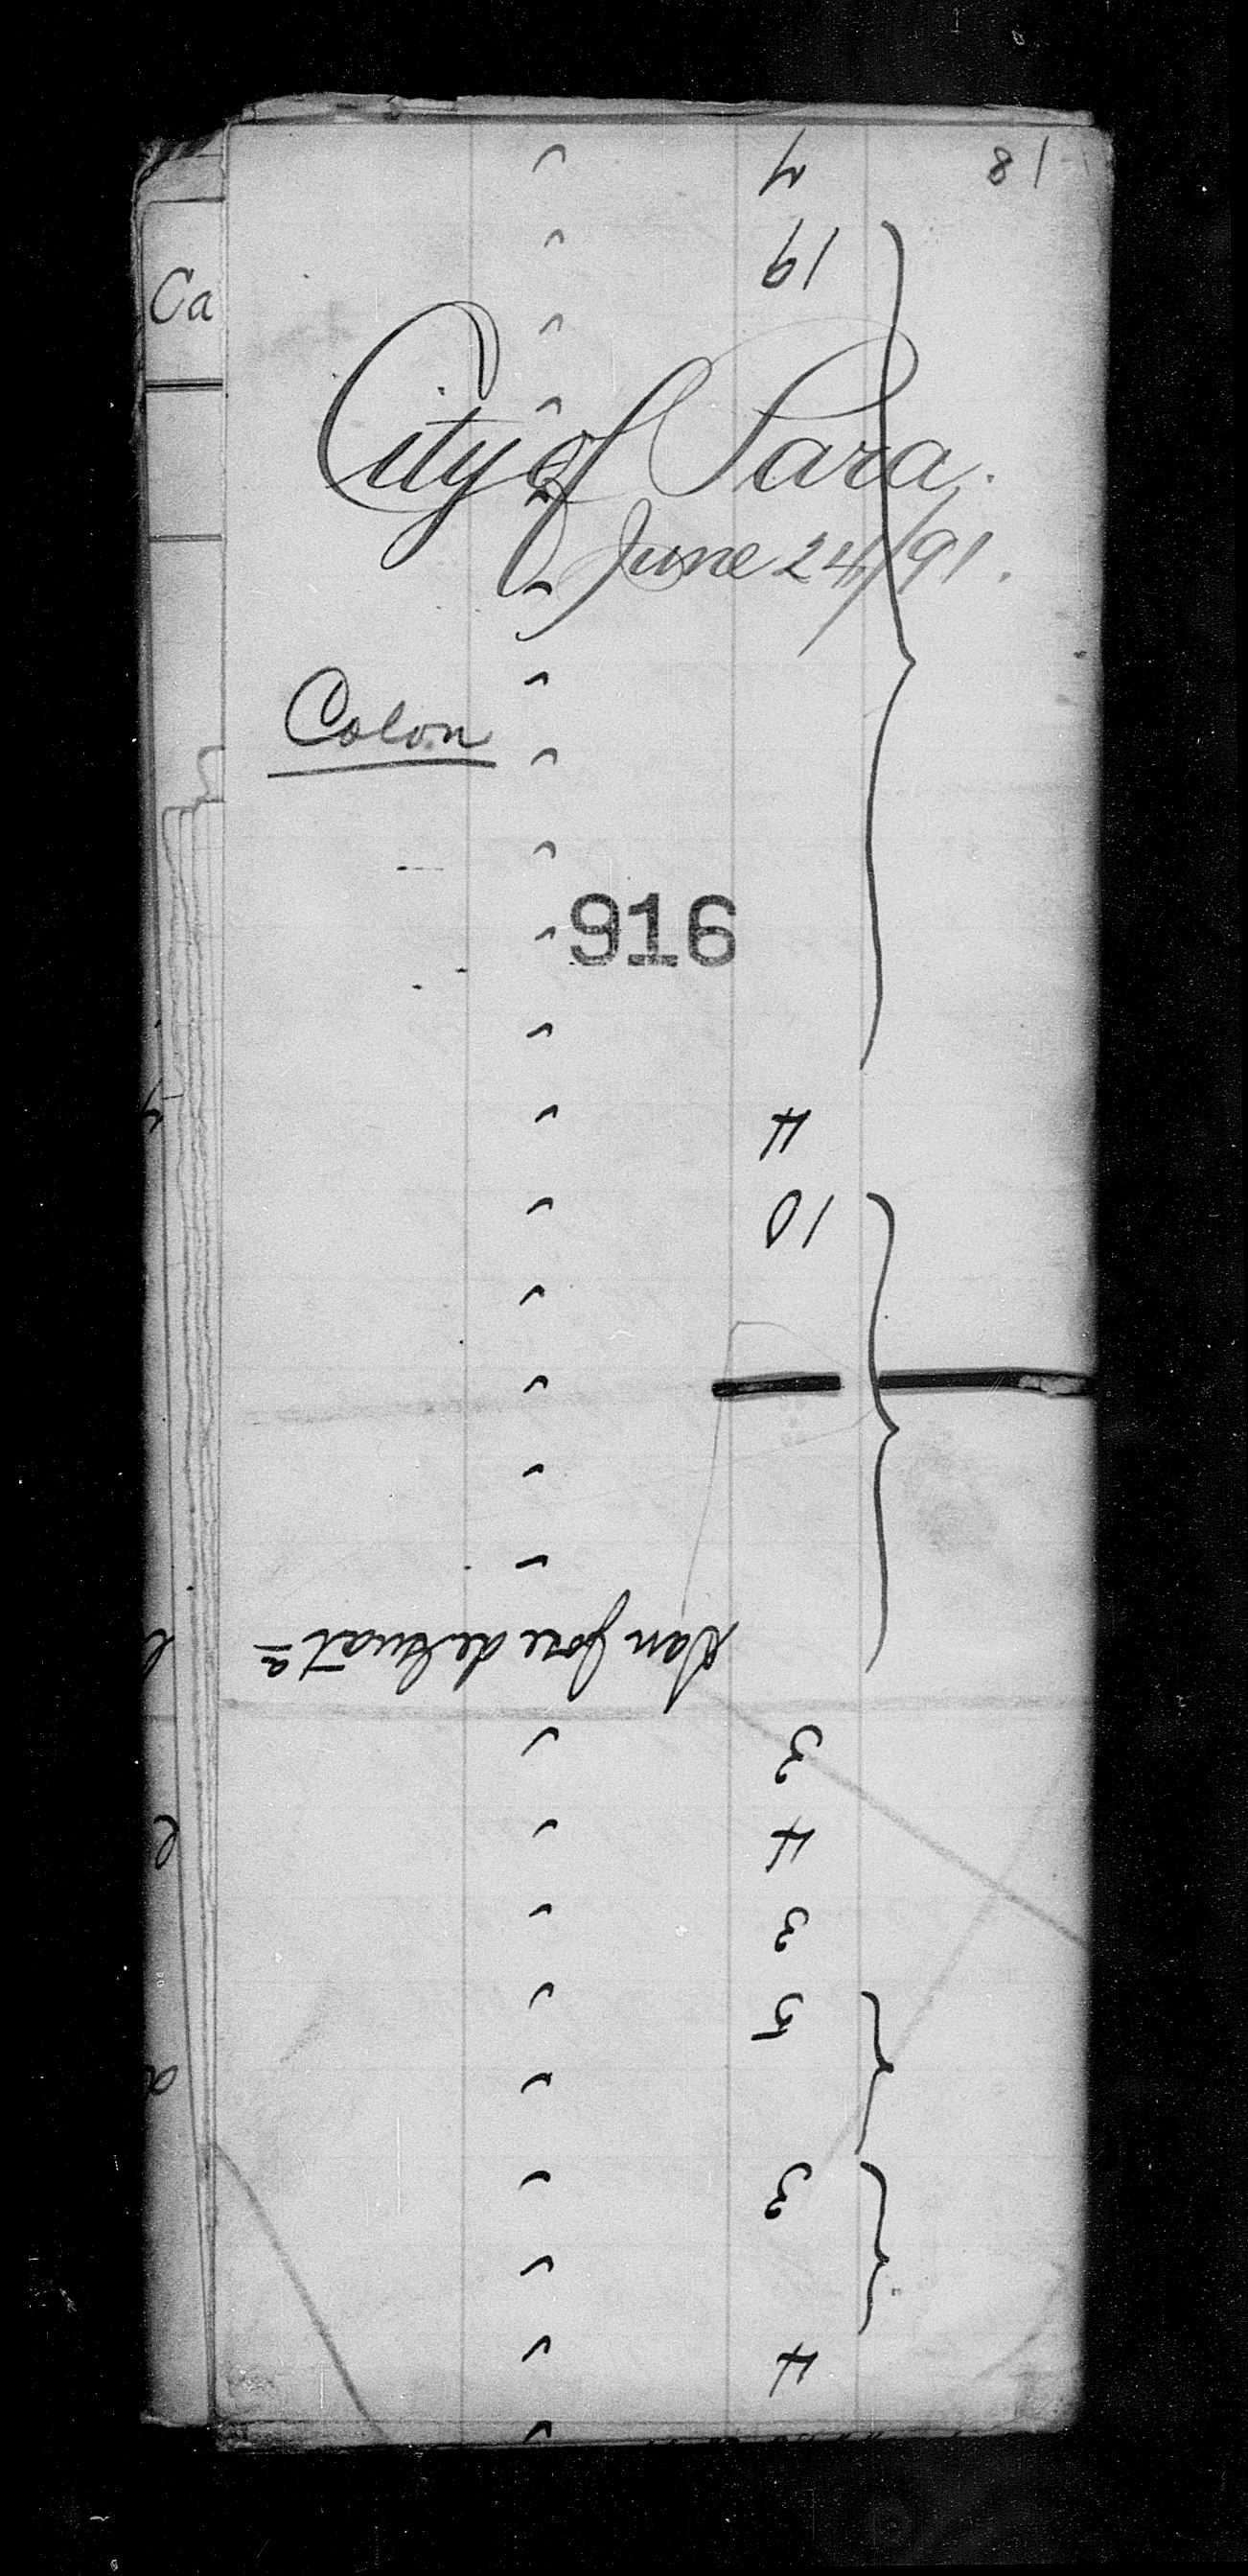 81
4
19
Ca
City of Para.
June 24/91.
Colon
916
4
10
San Jose de Guat a
3
4
3
5
3
4